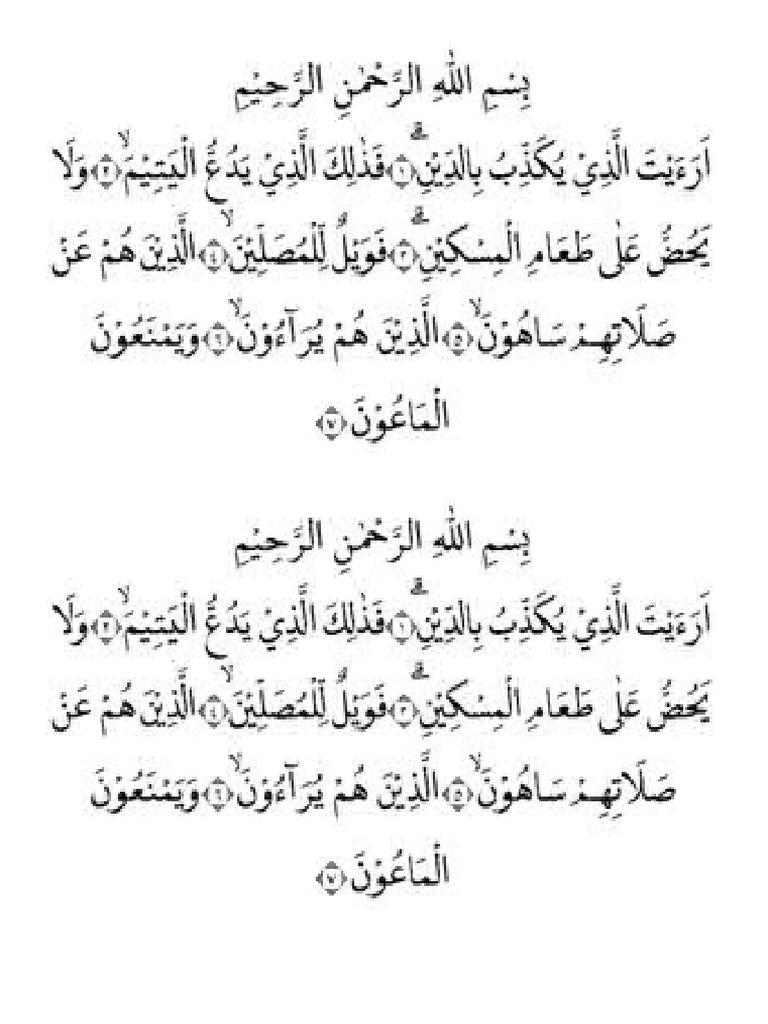 بِسْمِ اللّٰهِ الرَّحْمٰنِ الرَّحِيْمِ
اَرَءَيْتَ الَّذِيْ يُكَذِّبُ بِالدِّيْنِۗ ﴿١﴾ فَذٰلِكَ الَّذِيْ يَدُعُّ الْيَتِيْمَۙ ﴿٢﴾ وَلَا
يَحُضُّ عَلٰى طَعَامِ الْمِسْكِيْنِۗ ﴿٣﴾ فَوَيْلٌ لِّلْمُصَلِّيْنَۙ ﴿٤﴾ الَّذِيْنَ هُمْ عَنْ
صَلَاتِهِمْ سَاهُوْنَۙ ﴿٥﴾ الَّذِيْنَ هُمْ يُرَآءُوْنَۙ ﴿٦﴾ وَيَمْنَعُوْنَ
الْمَاعُوْنَ ﴿٧﴾
بِسْمِ اللّٰهِ الرَّحْمٰنِ الرَّحِيْمِ
اَرَءَيْتَ الَّذِيْ يُكَذِّبُ بِالدِّيْنِۗ ﴿١﴾ فَذٰلِكَ الَّذِيْ يَدُعُّ الْيَتِيْمَۙ ﴿٢﴾ وَلَا
يَحُضُّ عَلٰى طَعَامِ الْمِسْكِيْنِۗ ﴿٣﴾ فَوَيْلٌ لِّلْمُصَلِّيْنَۙ ﴿٤﴾ الَّذِيْنَ هُمْ عَنْ
صَلَاتِهِمْ سَاهُوْنَۙ ﴿٥﴾ الَّذِيْنَ هُمْ يُرَآءُوْنَۙ ﴿٦﴾ وَيَمْنَعُوْنَ
الْمَاعُوْنَ ﴿٧﴾